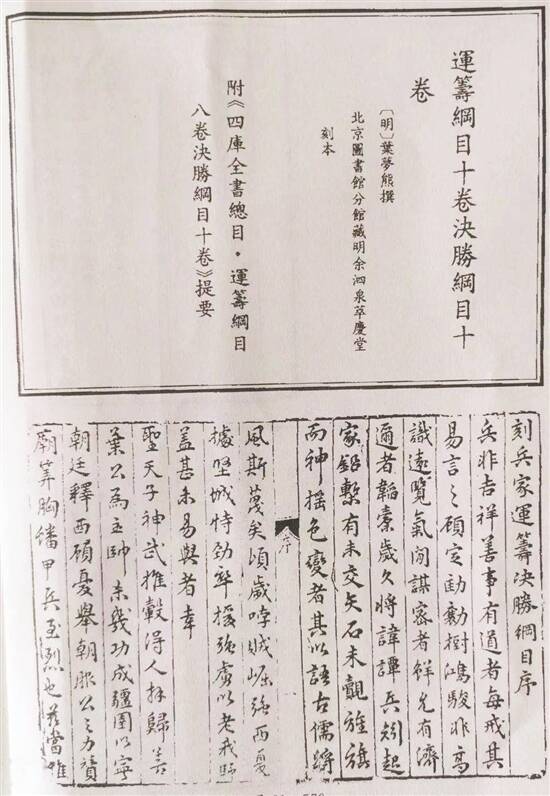 運籌綱目十卷決勝綱目十
卷
〔明〕葉夢熊撰
北京圖書館分館藏明余泗泉萃慶堂
刻本
附《四庫全書總目·運籌綱目
八卷決勝綱目十卷》提要
刻兵家運籌決勝綱目序
兵非吉祥善事有道者每戒其
易言之顧定勛勷樹鴻駿非高
識遠覽氣閒謀密者鮮克有濟
邇者韜櫜歲久將諱譚兵矧起
家鉛槧有未交矢石未覿旌旗
而神搖色變者其以語古儒將
風斯蔑矣頃歲哱賊崛強西夏
序
據堅城恃勁率援強虜以老我師
蓋甚未易與者幸
聖天子神武推轂得人拜歸善
葉公為主帥未幾功成疆圉以寧
朝廷釋西顧憂舉朝服公之力贊
廟筭胸蟠甲兵至烈也茲當